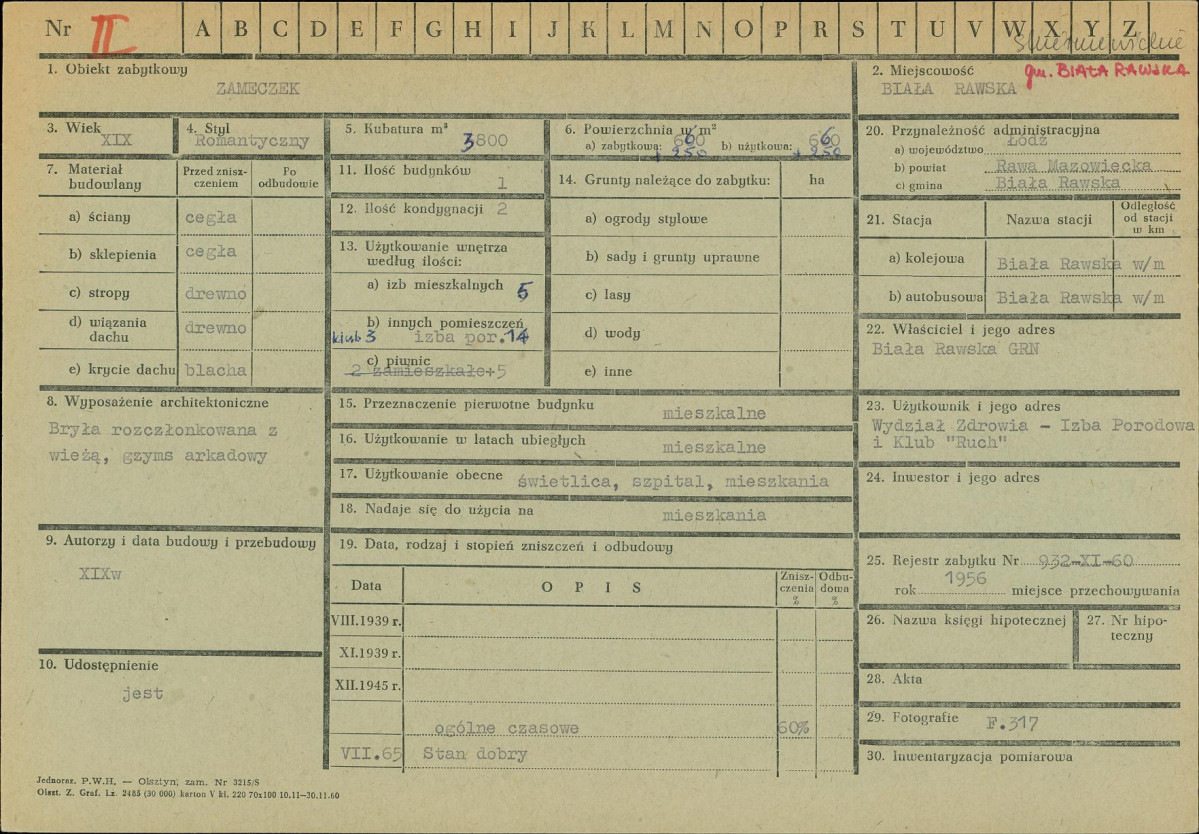 Nr II A B C D E F G H I J K L M N O P R S T U V W X Y Z
Skierniewickie
1. Obiekt zabytkowy
ZAMECZEK
2. Miejscowość gm. BIAŁA RAWSKA
BIAŁA RAWSKA
3. Wiek
XIX
4. Styl
Romantyczny
5. Kubatura m³
3800
6. Powierzchnia w m²
a) zabytkowa: 660 b) użytkowa: 660
+ 250 + 250
7. Materiał budowlany
Przed zniszczeniem
Po odbudowie
a) ściany cegła
b) sklepienia cegła
c) stropy drewno
d) wiązania dachu drewno
e) krycie dachu blacha
8. Wyposażenie architektoniczne
Bryła rozczłonkowana z
wieżą, gzyms arkadowy
9. Autorzy i data budowy i przebudowy
XIXw
10. Udostępnienie
jest
11. Ilość budynków
1
12. Ilość kondygnacji 2
13. Użytkowanie wnętrza
według ilości:
a) izb mieszkalnych 5
b) innych pomieszczeń
klub 3 izba por. 14
c) piwnic
2 zamieszkałe+5
14. Grunty należące do zabytku: ha
a) ogrody stylowe
b) sady i grunty uprawne
c) lasy
d) wody
e) inne
15. Przeznaczenie pierwotne budynku mieszkalne
16. Użytkowanie w latach ubiegłych mieszkalne
17. Użytkowanie obecne świetlica, szpital, mieszkania
18. Nadaje się do użycia na mieszkania
19. Data, rodzaj i stopień zniszczeń i odbudowy
Data OPIS Zniszczenia % Odbudowa %
VIII.1939 r.
XI.1939 r.
XII.1945 r.
ogólne czasowe 60%
VII.65 Stan dobry
20. Przynależność administracyjna
a) województwo Łódź
b) powiat Rawa Mazowiecka
c) gmina Biała Rawska
21. Stacja Nazwa stacji Odległość od stacji w km
a) kolejowa Biała Rawska w/m
b) autobusowa Biała Rawska w/m
22. Właściciel i jego adres
Biała Rawska GRN
23. Użytkownik i jego adres
Wydział Zdrowia - Izba Porodowa
i Klub "Ruch"
24. Inwestor i jego adres
25. Rejestr zabytku Nr 932-XI-60
rok 1956 miejsce przechowywania
26. Nazwa księgi hipotecznej
27. Nr hipoteczny
28. Akta
29. Fotografie F.317
30. Inwentaryzacja pomiarowa
Jednoraz. P.W.H. — Olsztyn, zam. Nr 3215/S
Olszt. Z. Graf. Lz. 2485 (30 000) karton V kl. 220 70x100 10.11—30.11.60